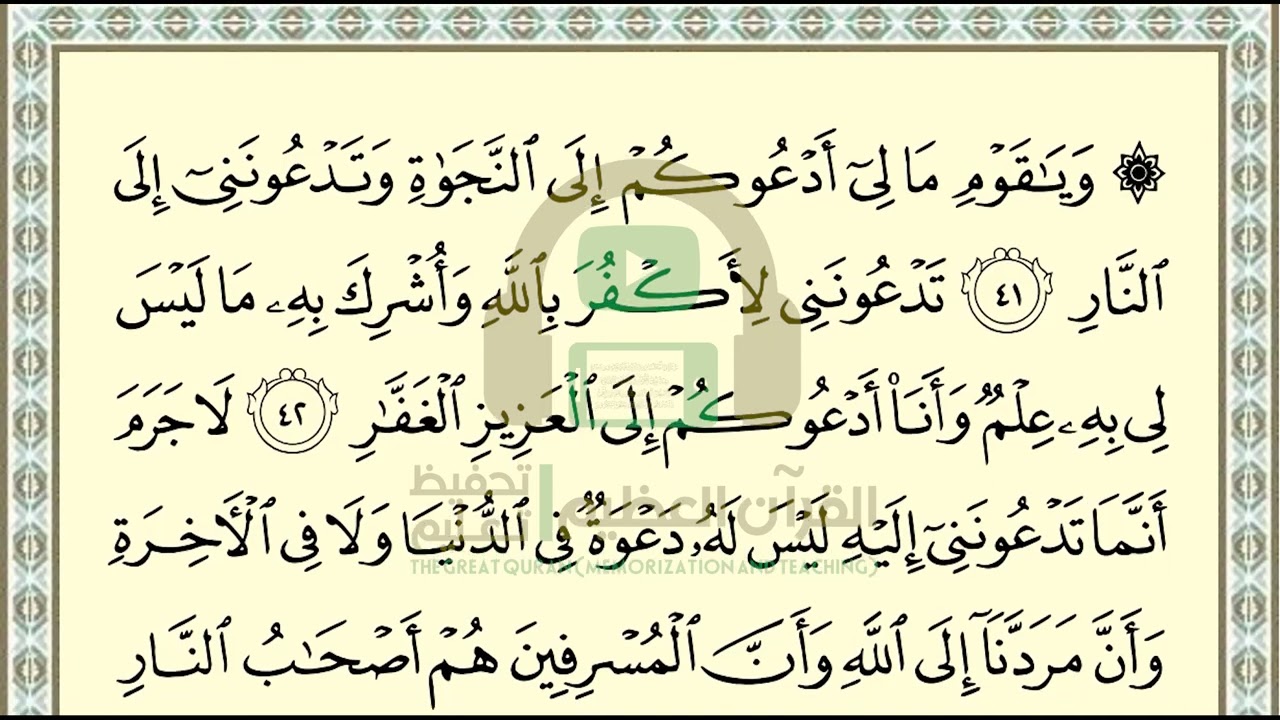 ۞ وَيَٰقَوْمِ مَا لِيٓ أَدْعُوكُمْ إِلَى ٱلنَّجَوٰةِ وَتَدْعُونَنِيٓ إِلَى
ٱلنَّارِ ٤١ تَدْعُونَنِي لِأَكْفُرَ بِٱللَّهِ وَأُشْرِكَ بِهِۦ مَا لَيْسَ
لِي بِهِۦ عِلْمٌ وَأَنَا۠ أَدْعُوكُمْ إِلَى ٱلْعَزِيزِ ٱلْغَفَّٰرِ ٤٢ لَا جَرَمَ
أَنَّمَا تَدْعُونَنِيٓ إِلَيْهِ لَيْسَ لَهُۥ دَعْوَةٌ فِي ٱلدُّنْيَا وَلَا فِي ٱلْأٓخِرَةِ
وَأَنَّ مَرَدَّنَآ إِلَى ٱللَّهِ وَأَنَّ ٱلْمُسْرِفِينَ هُمْ أَصْحَٰبُ ٱلنَّارِ
القرآن العظيم | تحفيظ تعليم
THE GREAT QURAN (MEMORIZATION AND TEACHING)